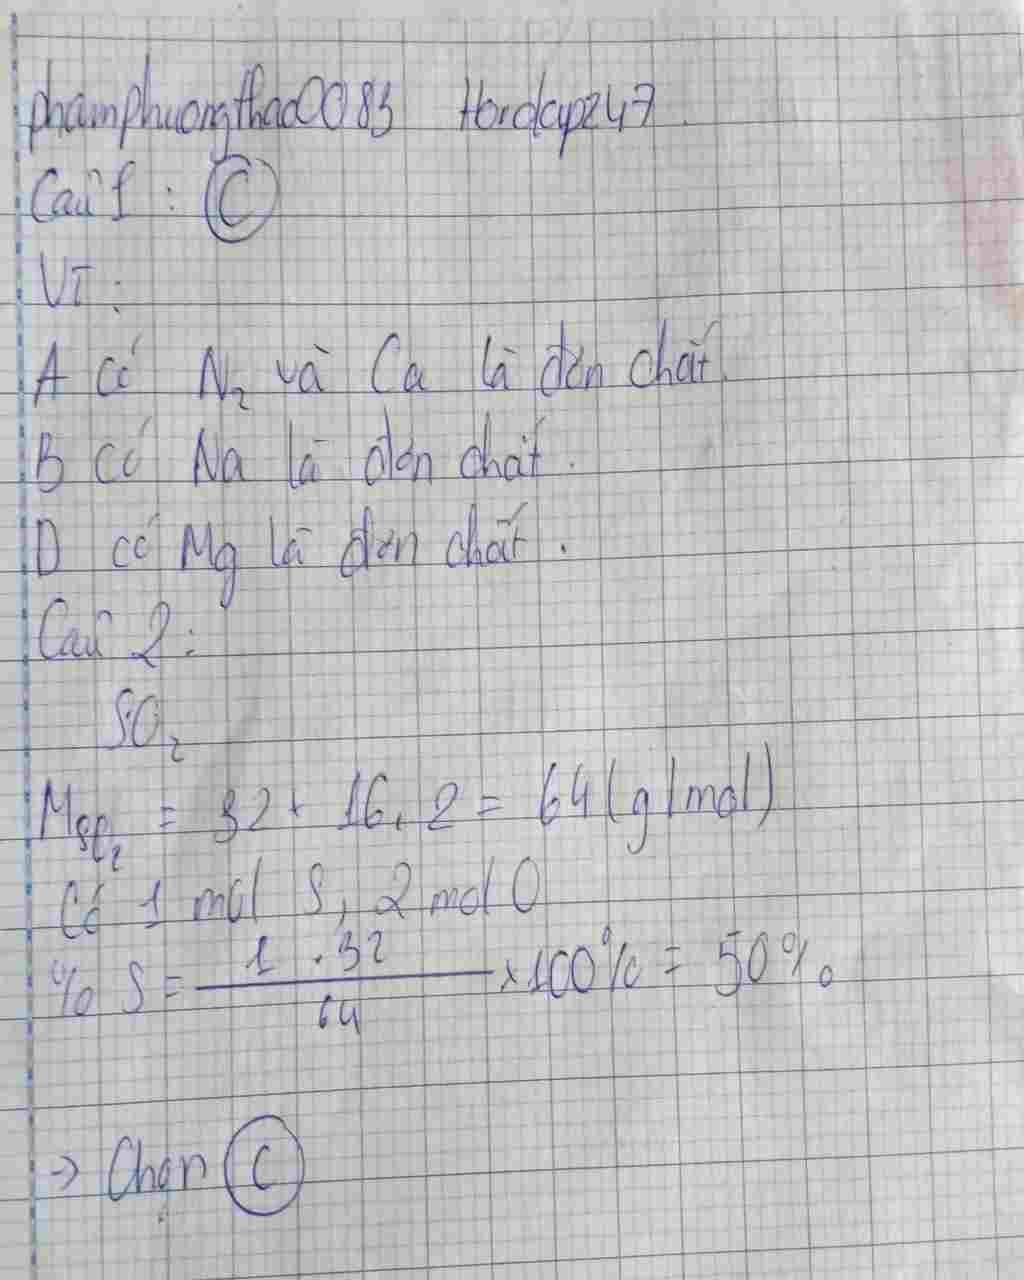 phamphuongthao0083 Hoidap247.
Câu 1 : C
VT :
A Có N₂ và Ca là đơn chất.
B Có Na là đơn chất.
D có Mg là đơn chất.
Câu 2 :
SO₂
M_SO₂ = 32 + 16.2 = 64 (g/mol)
Có 1 mol S, 2 mol O
% S = (1 . 32)/64 × 100% = 50%
→ Chọn C